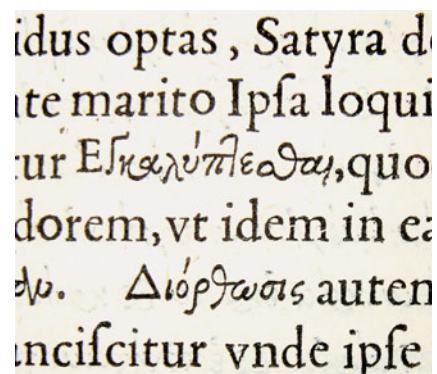 idus optas, Satyra d
te marito Ipſa loqui
tur Εγκαλύπτεσθαι, quo
dorem, vt idem in ea
Διόρθωσις autem
anciſcitur vnde ipſe